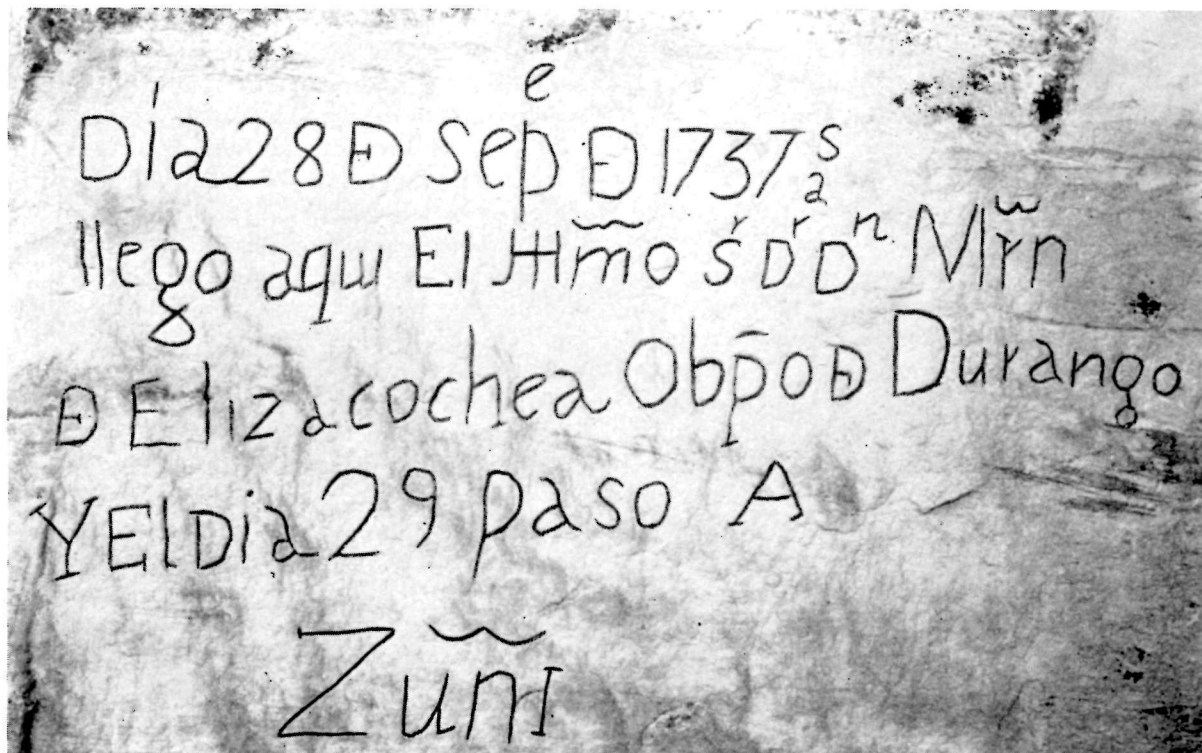 Dia 28 Ð Sepᵉ Ð 1737 aˢ
llego aqui El Illm̃o Sʳ Dʳ Dⁿ Mr̃n
Ð Elizacochea Obp̄o Ð Durango
Y El Dia 29 paso A
Zuñi